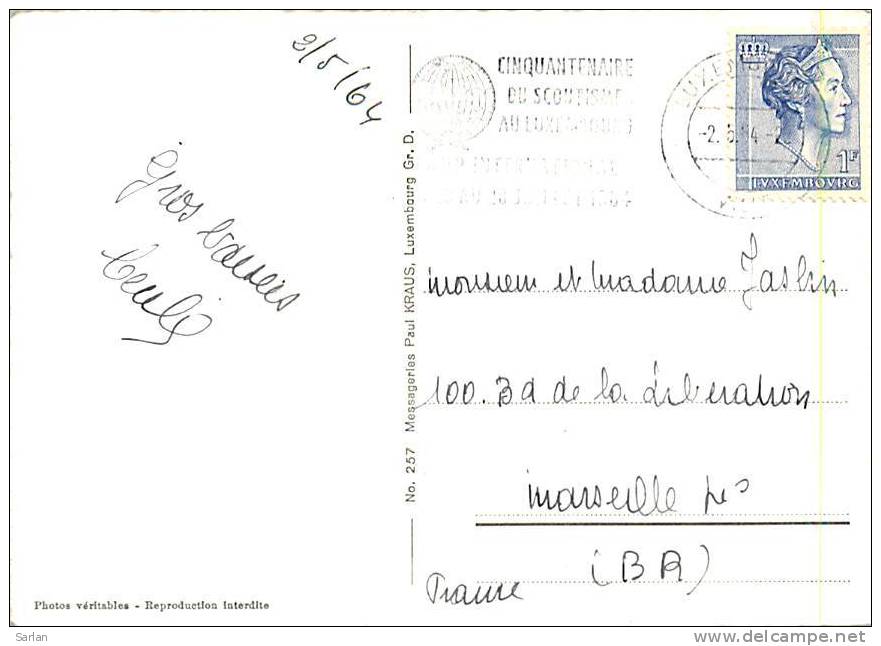 2/5/64
Gros baisers
CINQUANTENAIRE
DU SCOUTISME
AU LUXEMBOURG
-2.5.64-
1F
LUXEMBOURG
No. 257 Messageries Paul KRAUS, Luxembourg Gr. D.
monsieur et madame Jaslin
100. Bd de la Libération
marseille
(BR)
France
Photos véritables - Reproduction interdite
Sarlan
www.delcampe.net